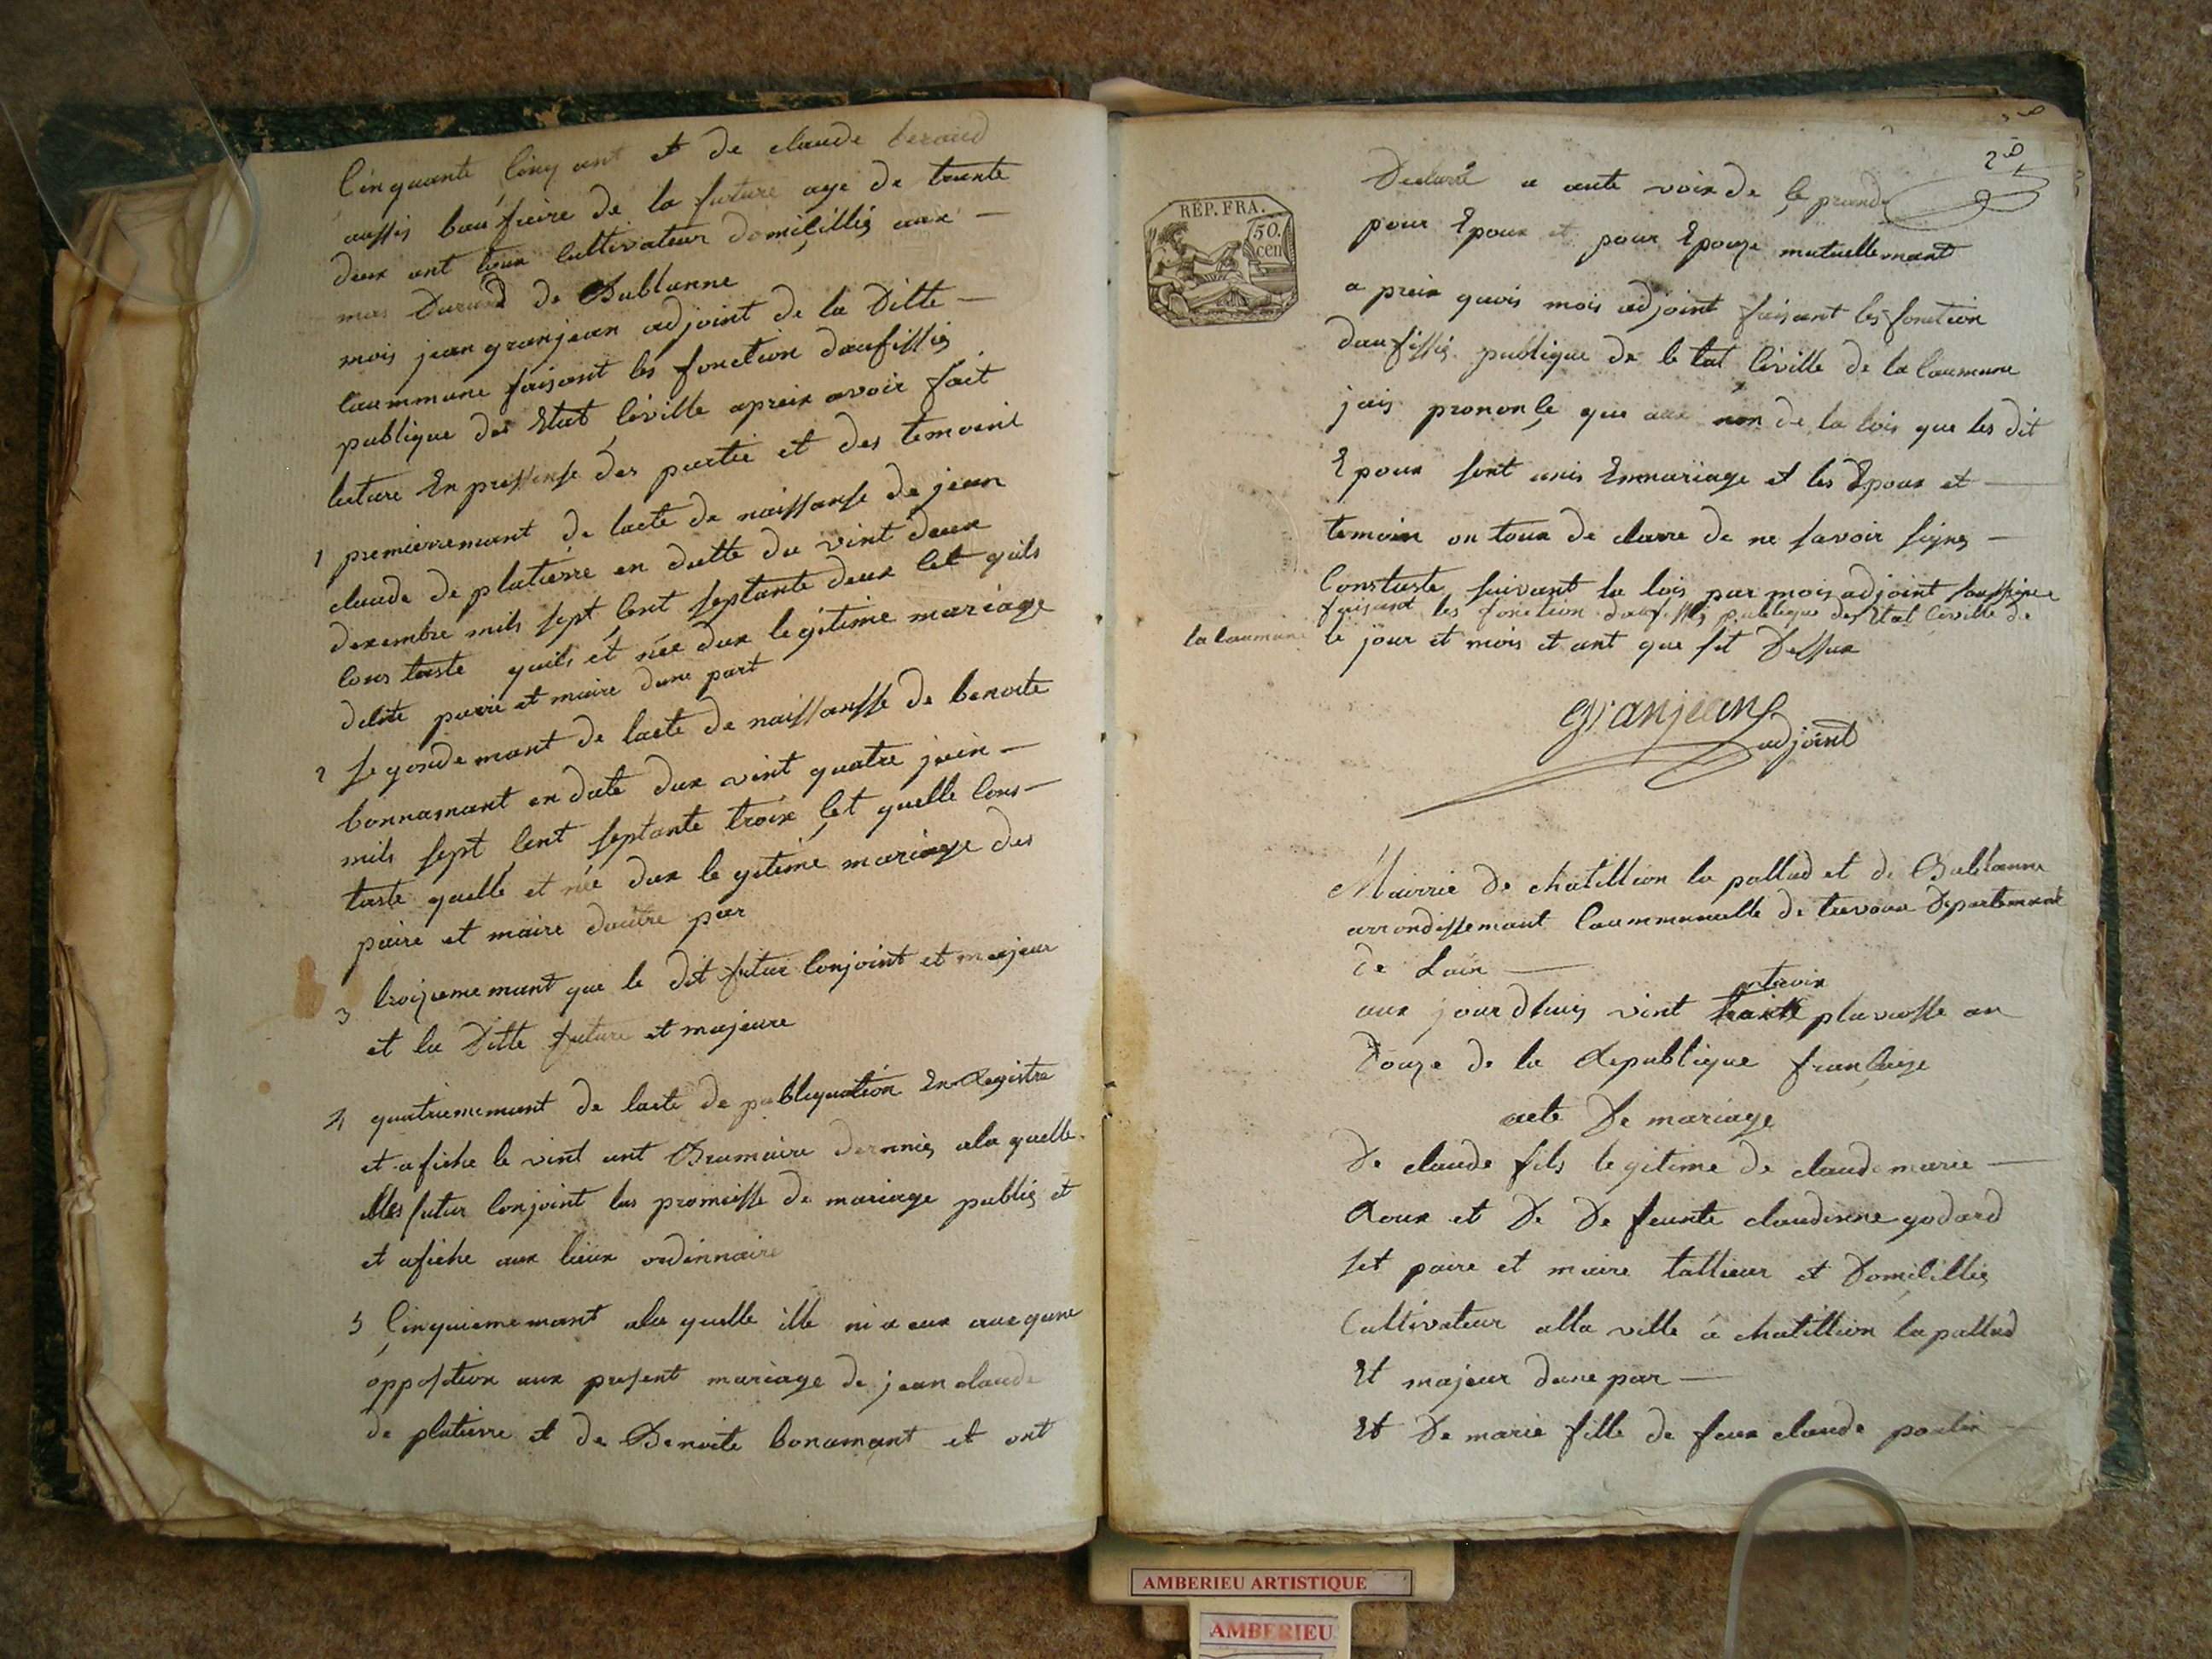 Cinquante Cinq ant et de claude beraud
aussis bau freire de la future age de trante
deux ant tous Cultivateur domicilliés aux
mas Durand de Bublanne
mois jean granjean adjoint de la Ditte
Caummune faisant les fonction daufissiés
publique des Etat Civille apreix avoir fait
lecture En pressense des partie et des temoint
1 premierremant de lacte de naissanse de jean
claude de platierre en datte du vint deux
dexembre mils sept Cent septante deux Cet quils
Cons taste quils et née dux legitime mariage
delote pairre et maire dune part
2 segondemant de lacte de naissansse de benoite
bonnamant en date dux vint quatre juin
mils sept Cent septante troix Cet quelle Cons
taste quelle et née dux le gitime mariage des
paire et maire dautre par
3 troizieme mant que le dit futur Conjoint et majeur
et la Ditte future et majeure
4 quatriememant de lacte de publiquation En Registre
et afiche le vint ant Brumaire dernnies ala quelle
les futur Conjoint las promisse de mariage publiés et
et afiche aux lieux ordinnaire
5 Cinquieme mant ala quelle ille ni a eux aucqune
opposition aux present mariage de jean claude
de platierre et de Benoite bonamant et ont
28
Declaré a aute voix de se prendre
RÉP. FRA.
50.
cen
pour Epoux et pour Epouze mutuellemant
a preix quois mois adjoint faisant les fonction
daufissié publique de le tat Civille de la Caumune
jais prononcé que aux nom de la lois que les dit
Epoux sont unis Enmariage et les Epoux et
temoin on tous de clarre de ne savoir signes
Constaste suivant la lois par mois adjoint saussigne
faisant les fonction daufissiés publique des Etat Civille de
la Caumune le jour et mois et ant que sit Dessux
granjean
adjoint
Mairrie de chatillion la pallud et de Bublanne
arrondissemant Caummunalle de trevoux Departemant
de Lain
aux jourdhuis vint troix pluviosse an
Douze de la Republique francaize
acte De mariage
De claude fils legitime de claude marie
Roux et De De feunte claudinne godard
set paire et maire tallieur et Domicilliés
Cultivateur alla ville a chatillion la pallud
Et majeur dune par
Et De marie fille de feux claude
AMBERIEU ARTISTIQUE
AMBERIEU